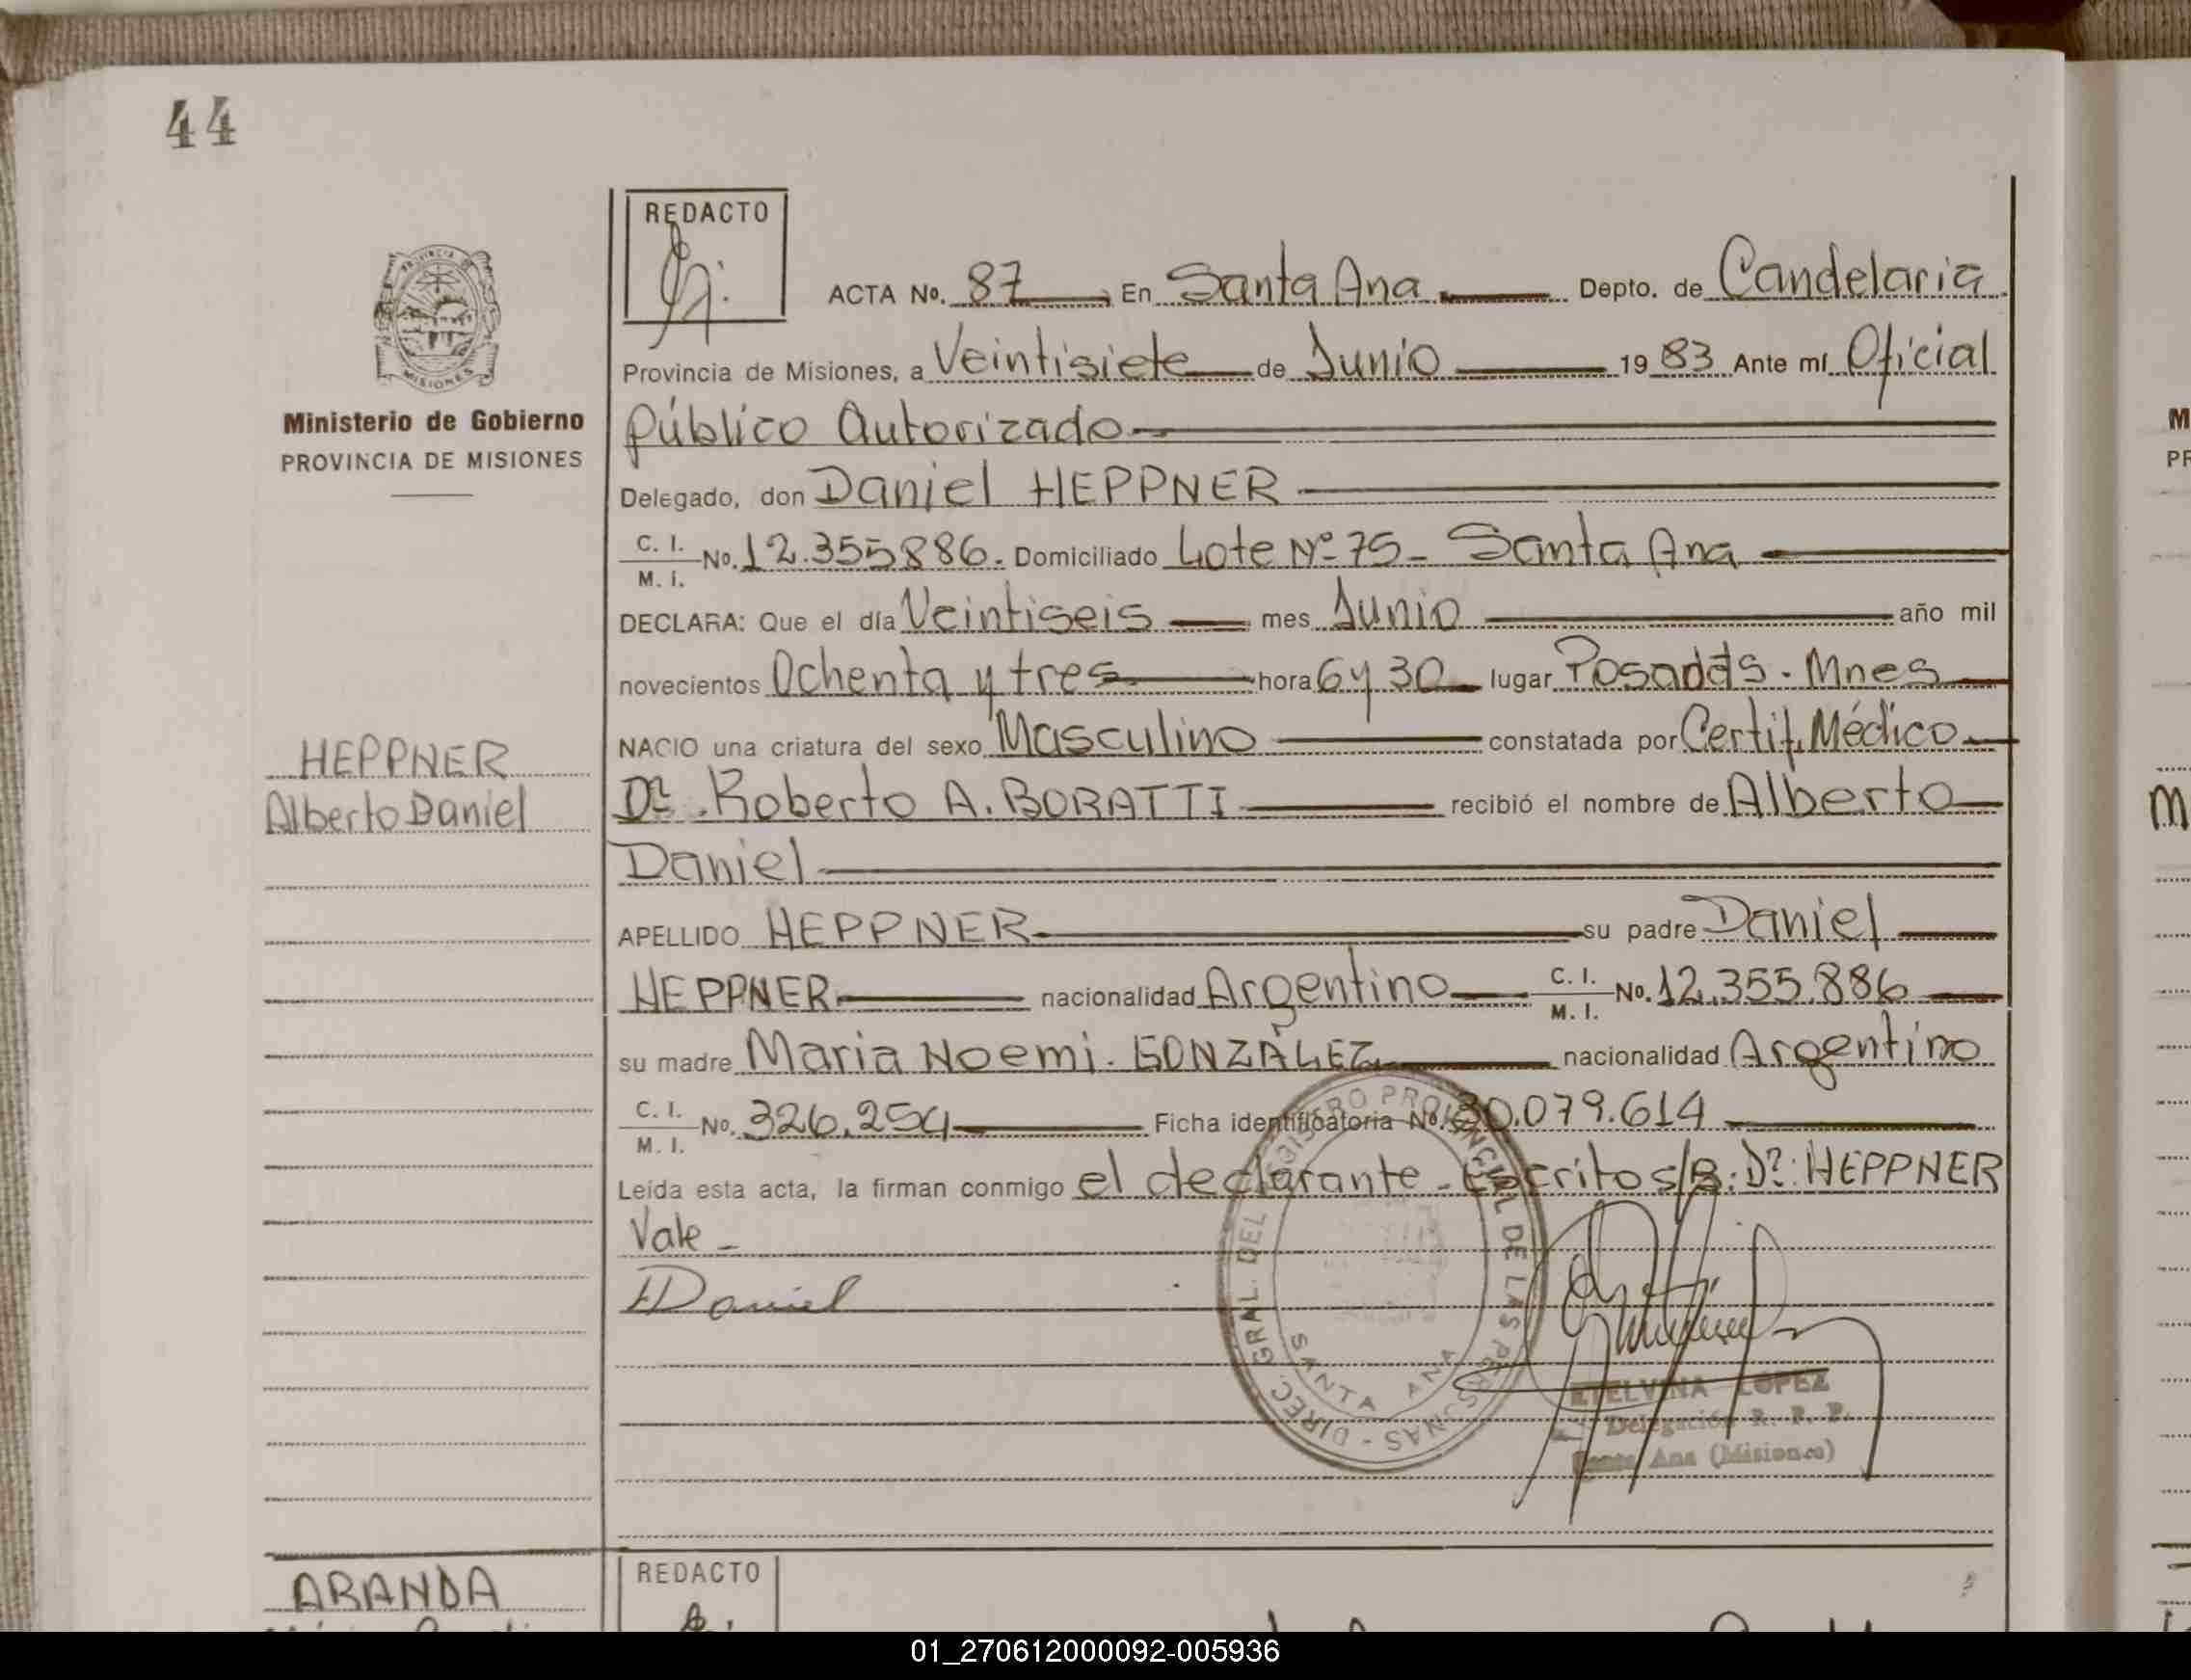 44
REDACTO
PROVINCIA DE
MISIONES
ACTA No. 87 En Santa Ana Depto. de Candelaria
Provincia de Misiones, a Veintisiete de Junio 1983 Ante mí Oficial
Ministerio de Gobierno
PROVINCIA DE MISIONES
Público Autorizado
Delegado, don Daniel HEPPNER
C. I. M. I. No. 12.355886. Domiciliado Lote Nº 75 - Santa Ana
DECLARA: Que el día Veintiseis mes Junio año mil
novecientos Ochenta y tres hora 6 y 30 lugar Posadas. Mnes
NACIO una criatura del sexo Masculino constatada por Certif. Médico
HEPPNER
Alberto Daniel
Dr. Roberto A. BORATTI recibió el nombre de Alberto
Daniel
APELLIDO HEPPNER su padre Daniel
HEPPNER nacionalidad Argentino C. I. M. I. No. 12.355.886
su madre Maria Noemi. GONZÁLEZ nacionalidad Argentino
C. I. M. I. No. 326.254 Ficha identificatoria No. 30.079.614
Leída esta acta, la firman conmigo el declarante - Escrito s/B: D?: HEPPNER
Vale -
Daniel
DIREC. GRAL. DEL REGISTRO PROVINCIAL DE LAS PERSONAS -
SANTA ANA
ETELVINA LOPEZ
Delegación R. P. P.
Santa Ana (Misiones)
ARANDA
REDACTO
M
PR
M
01_270612000092-005936